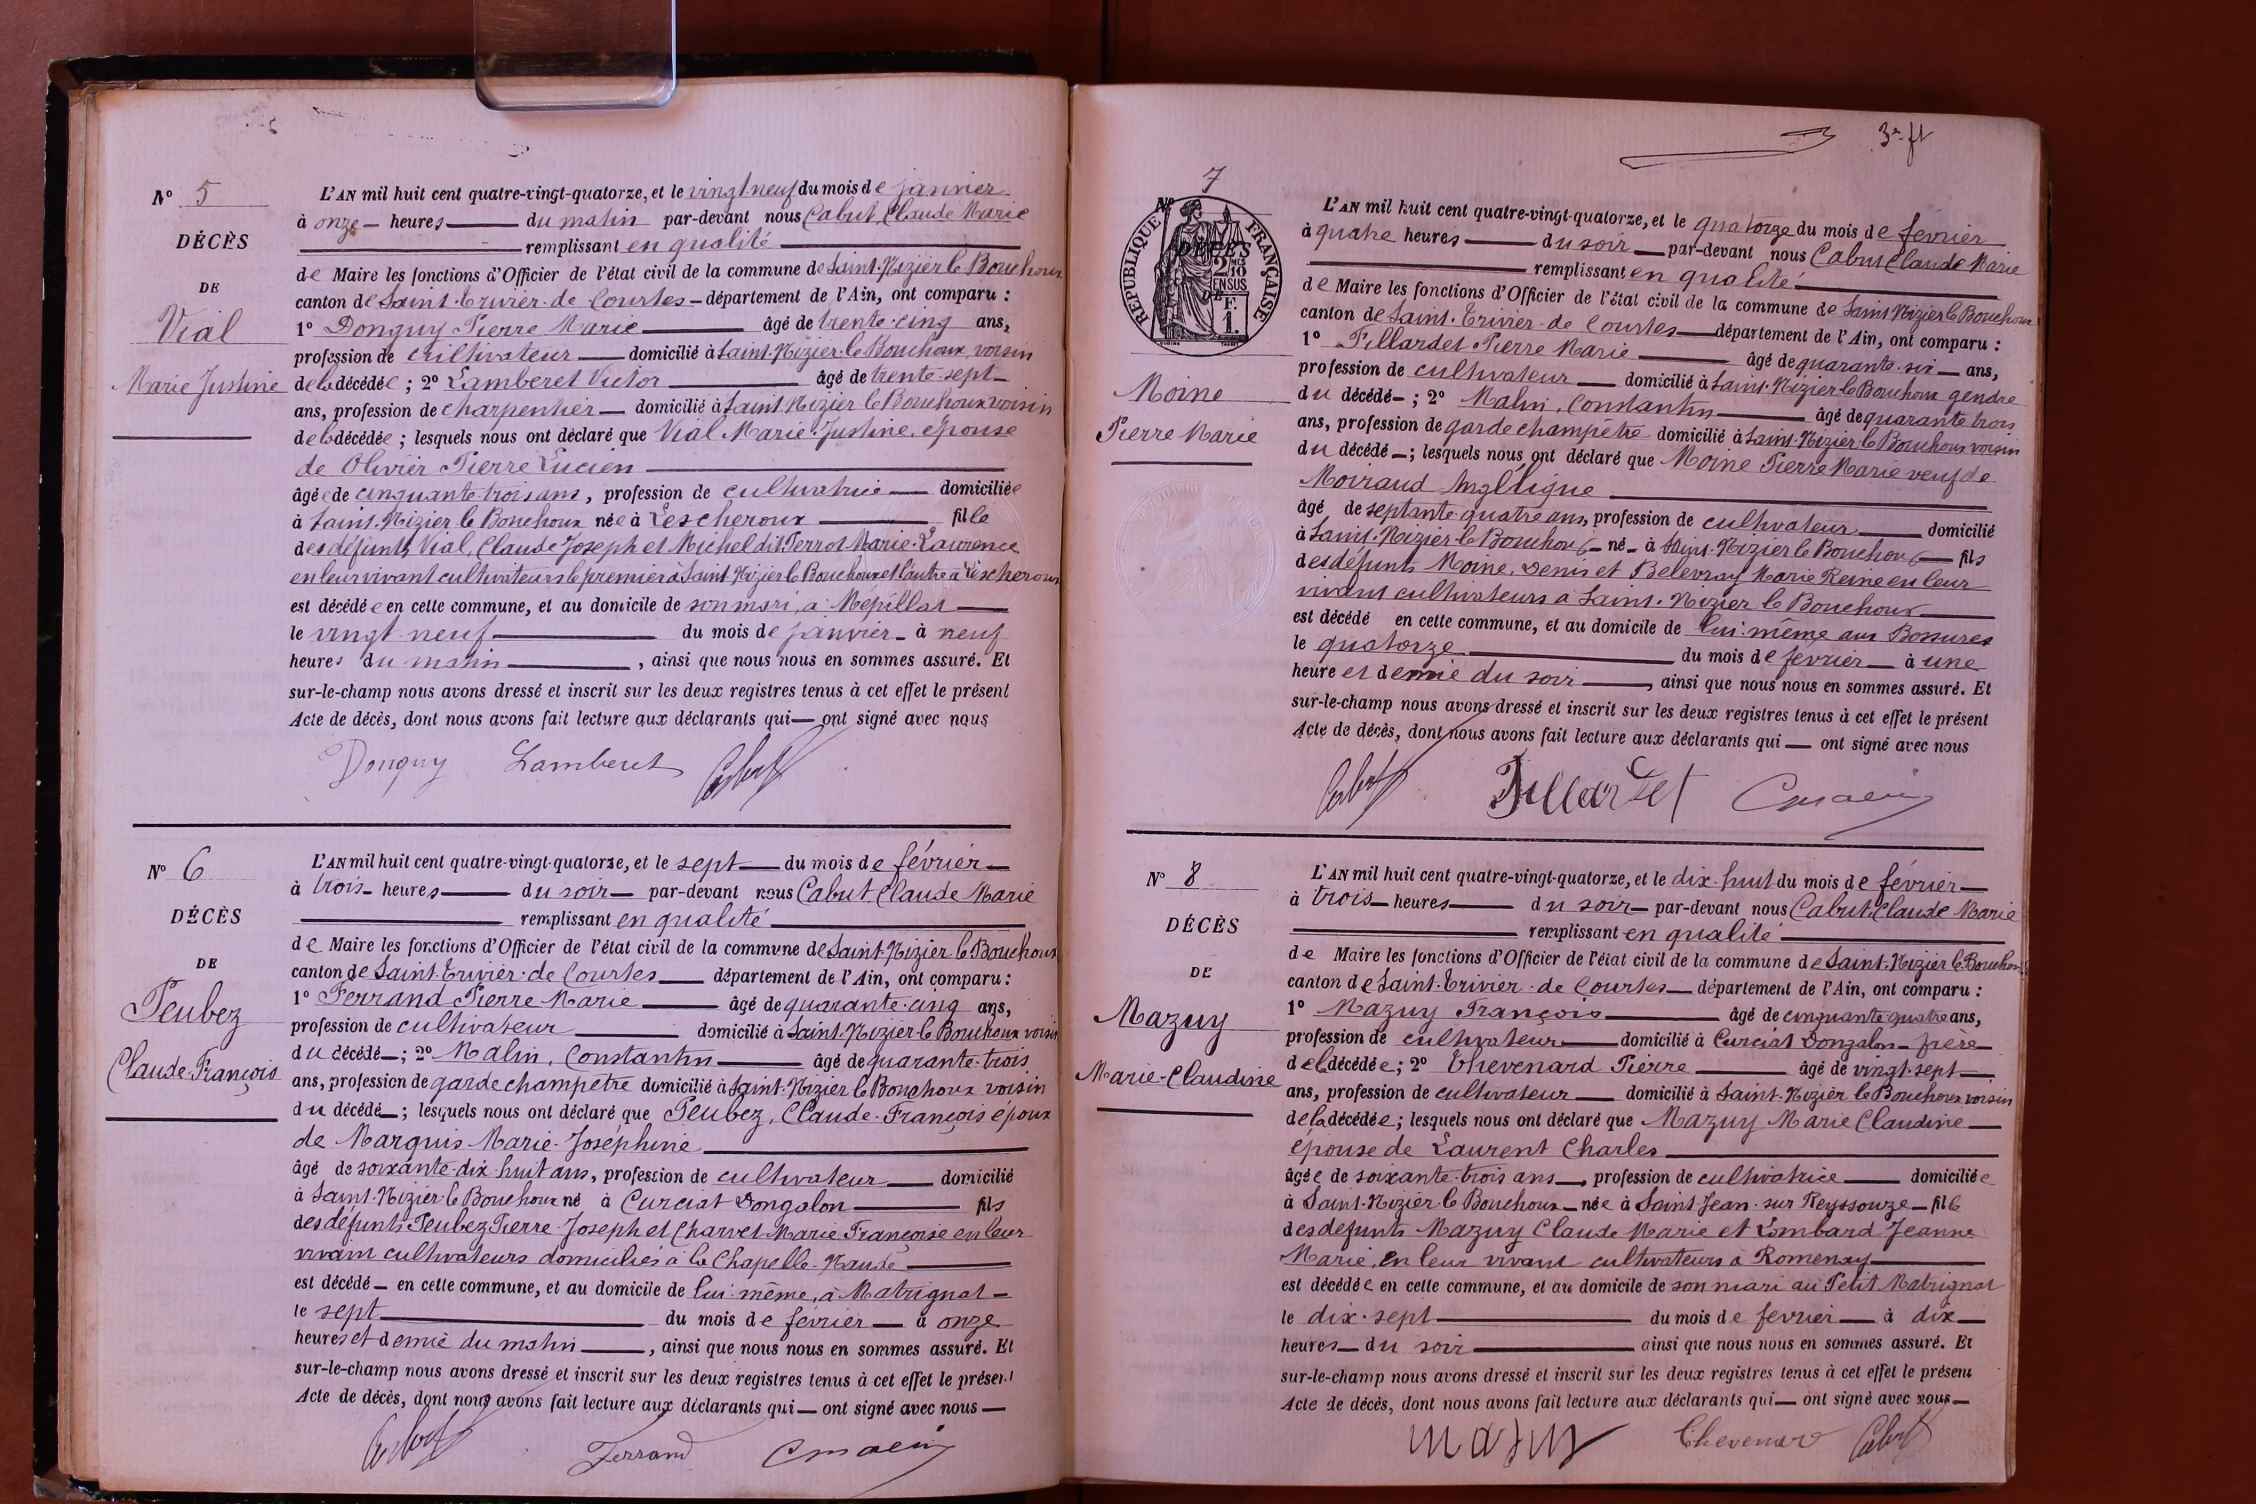 Nº 5
DÉCÈS
DE
Vial
Marie Justine
L'AN mil huit cent quatre-vingt-quatorze, et le vingt-neuf du mois de janvier
à onze heures du matin par-devant nous Cabut, Claude Marie
remplissant en qualité
de Maire les fonctions d'Officier de l'état civil de la commune de Saint-Nizier le Bouchoux
canton de Saint-Trivier-de Courtes département de l'Ain, ont comparu :
1º Donguy Pierre Marie âgé de trente-cinq ans,
profession de cultivateur domicilié à Saint-Nizier-le Bouchoux voisin
de la décédée ; 2º Lamberet Victor âgé de trente-sept
ans, profession de charpentier domicilié à Saint Nizier le Bouchoux voisin
de la décédée ; lesquels nous ont déclaré que Vial Marie-Justine, épouse
de Olivier Pierre Lucien
âgée de cinquante trois ans, profession de cultivatrice domiciliée
à Saint-Nizier le Bouchoux née à Lescheroux fille
des défunts Vial, Claude Joseph et Michel dit Perrot Marie-Laurence
en leur vivant cultivateurs le premier à Saint-Nizier le Bouchoux et l'autre à Lescheroux
est décédée en cette commune, et au domicile de son mari, à Mépillat
le vingt-neuf du mois de janvier à neuf
heures du matin, ainsi que nous nous en sommes assuré. Et
sur-le-champ nous avons dressé et inscrit sur les deux registres tenus à cet effet le présent
Acte de décès, dont nous avons fait lecture aux déclarants qui ont signé avec nous
Donguy Lamberet Cabut
Nº 6
DÉCÈS
DE
Peubez
Claude-François
L'AN mil huit cent quatre-vingt-quatorze, et le sept du mois de février
à trois heures du soir par-devant nous Cabut, Claude Marie
remplissant en qualité
de Maire les fonctions d'Officier de l'état civil de la commune de Saint-Nizier le Bouchoux
canton de Saint-Trivier-de Courtes département de l'Ain, ont comparu :
1º Ferrand Pierre Marie âgé de quarante-cinq ans,
profession de cultivateur domicilié à Saint-Nizier-le Bouchoux voisin
du décédé ; 2º Malin, Constantin âgé de quarante-trois
ans, profession de garde champêtre domicilié à Saint-Nizier le Bouchoux voisin
du décédé ; lesquels nous ont déclaré que Peubez, Claude-François époux
de Marquis Marie-Joséphine
âgé de soixante-dix-huit ans, profession de cultivateur domicilié
à Saint-Nizier-le Bouchoux né à Curciat Dongalon fils
des défunts Peubez Pierre-Joseph et Charvet Marie Françoise en leur
vivant cultivateurs domiciliés à la Chapelle-Naude
est décédé en cette commune, et au domicile de lui-même, à Matrignat
le sept du mois de février à onze
heures et demie du matin, ainsi que nous nous en sommes assuré. Et
sur-le-champ nous avons dressé et inscrit sur les deux registres tenus à cet effet le présent
Acte de décès, dont nous avons fait lecture aux déclarants qui ont signé avec nous
Cabut Ferrand Cmalin
3e ft
Nº 7
RÉPUBLIQUE FRANÇAISE
2 MES 10 EN SUS
F. 1.
DÉCÈS
DE
Moine
Pierre Marie
L'AN mil huit cent quatre-vingt-quatorze, et le quatorze du mois de février
à quatre heures du soir par-devant nous Cabut Claude Marie
remplissant en qualité
de Maire les fonctions d'Officier de l'état civil de la commune de Saint Nizier le Bouchoux
canton de Saint-Trivier-de Courtes département de l'Ain, ont comparu :
1º Fillardet Pierre Marie âgé de quarante-six ans,
profession de cultivateur domicilié à Saint-Nizier le Bouchoux gendre
du décédé ; 2º Malin, Constantin âgé de quarante trois
ans, profession de garde champêtre domicilié à Saint-Nizier le Bouchoux voisin
du décédé ; lesquels nous ont déclaré que Moine Pierre Marie veuf de
Moiraud Angélique
âgé de septante-quatre ans, profession de cultivateur domicilié
à Saint-Nizier le Bouchoux né à Saint-Nizier le Bouchoux fils
des défunts Moine, Denis et Belevray Marie Reine en leur
vivant cultivateurs à Saint-Nizier le Bouchoux
est décédé en cette commune, et au domicile de lui-même aux Bossures
le quatorze du mois de février à une
heure et demie du soir, ainsi que nous nous en sommes assuré. Et
sur-le-champ nous avons dressé et inscrit sur les deux registres tenus à cet effet le présent
Acte de décès, dont nous avons fait lecture aux déclarants qui ont signé avec nous
Cabut Fillardet Cmalin
Nº 8
DÉCÈS
DE
Mazuy
Marie-Claudine
L'AN mil huit cent quatre-vingt-quatorze, et le dix-huit du mois de février
à trois heures du soir par-devant nous Cabut, Claude Marie
remplissant en qualité
de Maire les fonctions d'Officier de l'état civil de la commune de Saint-Nizier le Bouchoux
canton de Saint-Trivier-de Courtes département de l'Ain, ont comparu :
1º Mazuy François âgé de cinquante quatre ans,
profession de cultivateur domicilié à Curciat Dongalon frère
de la décédée ; 2º Thevenard Pierre âgé de vingt-sept
ans, profession de cultivateur domicilié à Saint-Nizier le Bouchoux voisin
de la décédée ; lesquels nous ont déclaré que Mazuy Marie Claudine
épouse de Laurent Charles
âgée de soixante-trois ans, profession de cultivatrice domiciliée
à Saint-Nizier le Bouchoux née à Saint Jean-sur Reyssouze fille
des défunts Mazuy Claude Marie et Lombard Jeanne
Marie, en leur vivant cultivateurs à Romenay
est décédée en cette commune, et au domicile de son mari au Petit Matrignat
le dix-sept du mois de février à dix
heures du soir ainsi que nous nous en sommes assuré. Et
sur-le-champ nous avons dressé et inscrit sur les deux registres tenus à cet effet le présent
Acte de décès, dont nous avons fait lecture aux déclarants qui ont signé avec nous
Mazuy Thevenard Cabut